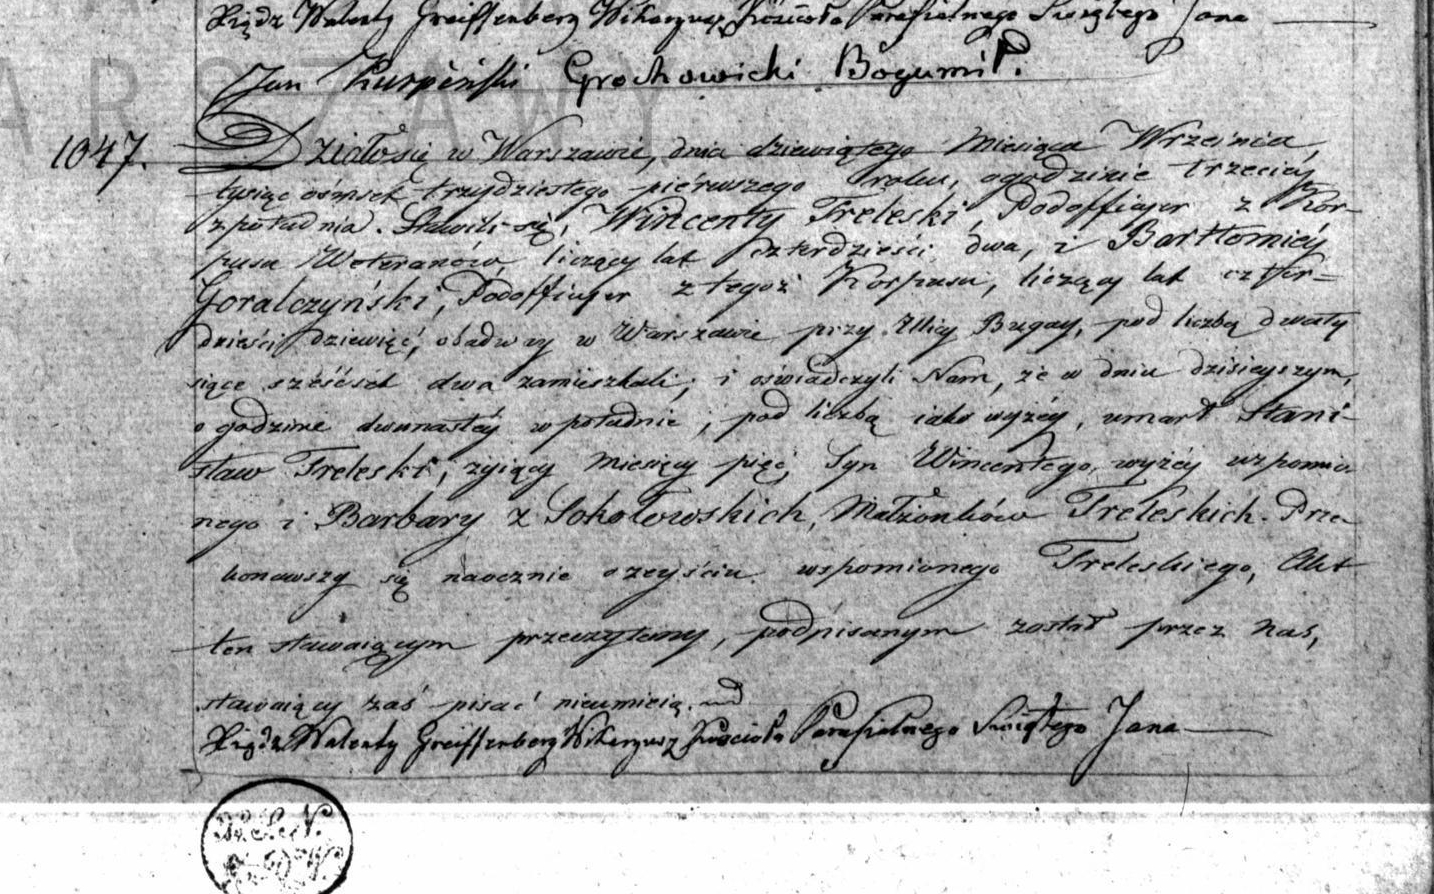 Xiądz Walenty Greiffenberg Wikaryusz Kościoła Parafialnego Świętego Jana
Jan Kurpiński Grochowicki Bogumił.
1047. Działo się w Warszawie, dnia dziewiątego Miesiąca Września,
tysiąc ośmset trzydziestego piérwszego roku, o godzinie trzeciéy
z południa. Stawili się, Wincenty Treleski, Podofficyer z Kor-
pusu Weteranów, liczący lat czterdzieści dwa, i Bartłomiéy
Goralczyński, Podofficyer z tegoż Korpusu, liczący lat czter=
dzieści dziewięć, obadway w Warszawie przy Ulicy Bugay, pod liczbą dwa ty
siące sześćset dwa zamieszkali; i oświadczyli Nam, że w dniu dzisieyszym,
o godzinie dwunastéy w południe, pod liczbą iako wyżéy, umarł Stani-
sław Treleski, żyiący miesięcy pięć, Syn Wincentego wyżéy wspomio
nego i Barbary z Sokołowskich, Małżonków Treleskich. Prze
konawszy się naocznie o zeyściu wspomionego Treleskiego, Akt
ten stawaiącym przeczytany, podpisanym został przez nas,
stawaiący zaś pisać nieumieią.
Xiądz Walenty Greiffenberg Wikaryusz Kościoła Parafialnego Świętego Jana